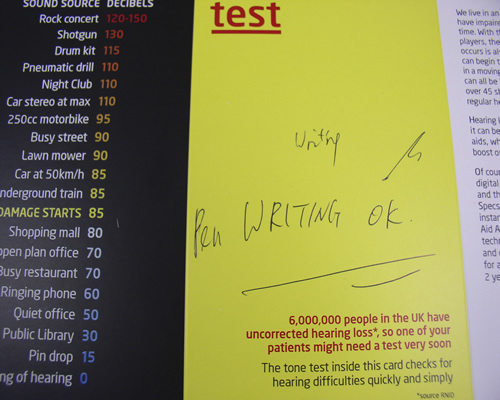 SOUND SOURCE DECIBELS
Rock concert 120-150
Shotgun 130
Drum kit 115
Pneumatic drill 110
Night Club 110
Car stereo at max 110
250cc motorbike 95
Busy street 90
Lawn mower 90
Car at 50km/h 85
nderground train 85
DAMAGE STARTS 85
Shopping mall 80
open plan office 70
Busy restaurant 70
Ringing phone 60
Quiet office 50
Public Library 30
Pin drop 15
ng of hearing 0
test
Writing
Pen WRITING OK.
6,000,000 people in the UK have
uncorrected hearing loss*, so one of your
patients might need a test very soon
The tone test inside this card checks for
hearing difficulties quickly and simply
*source RNID
We live in an
have impaire
time. With th
players, the
occurs is als
can begin t
in a moving
can all be
over 45 s
regular he
Hearing l
it can be
aids, wh
boost o
Of cour
digital
and th
Specs
instan
Aid A
techn
and
for a
2 ye